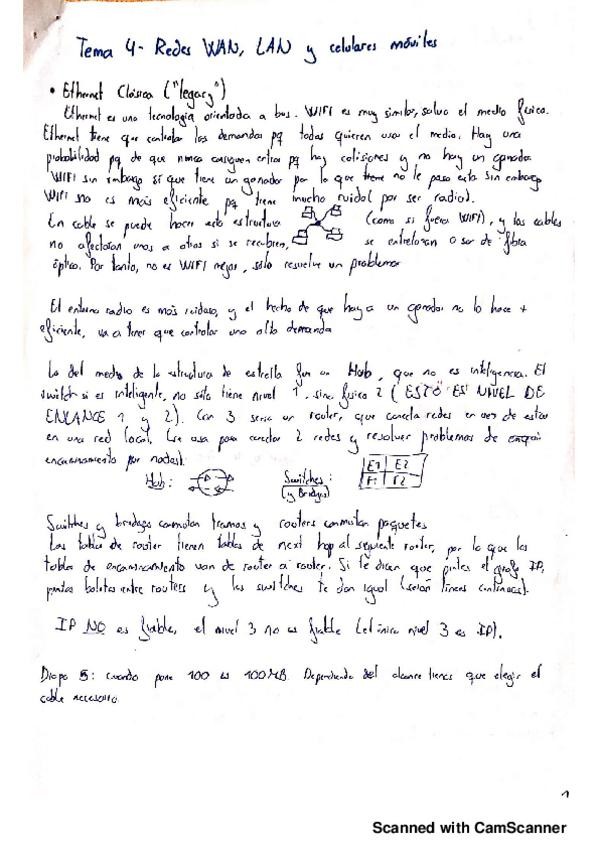 Tema 4- Redes WAN, LAN y celulares móviles
• Ethernet Clásica ("legacy")
Ethernet es una tecnología orientada a bus. WIFI es muy similar, salvo el medio físico.
Ethernet tiene que controlar las demandas pq todas quieren usar el medio. Hay una
probabilidad pq de que nunca consiguen entrar pq hay colisiones y no hay un ganador
WIFI sin embargo sí que tiene un ganador por lo que tiene no le pasa esto sin embargo
WIFI no es más eficiente pq tiene mucho ruido (por ser radio).
En cable se puede hacer esta estructura (como si fuera WIFI), y los cables
no afectarían unos a otros si se recubren, se entrelazan o ser de fibra
óptica. Por tanto, no es WIFI mejor, sólo resuelve un problema
El entorno radio es más ruidoso, y el hecho de que haya un ganador no lo hace +
eficiente, va a tener que controlar una alta demanda
Lo del medio de la estructura de estrella es un Hub, que no es inteligencia. El
switch si es inteligente, no sólo tiene nivel 1, sino físico 2 (ESTO ES NIVEL DE
ENLACE 1 y 2). Con 3 sería un router, que conecta redes en vez de estar
en una red local. (se usa para conectar 2 redes y resolver problemas de
encaminamiento por nodos).
Hub: Switches: E1 E2
(y Bridges)
Switches y bridges conmutan tramas y routers conmutan paquetes
Las tablas de router tienen tablas de next hop al siguiente router, por lo que las
tablas de encaminamiento van de router a router. Si te dicen que pintes el grafo IP,
pintas bolitas entre routers y los switches te dan igual (serán líneas continuas).
IP NO es fiable, el nivel 3 no es fiable (el único nivel 3 es IP).
Diapo 5: cuando pone 100 es 100MB. Dependiendo del alcance tienes que elegir el
cable necesario.
1
Scanned with CamScanner